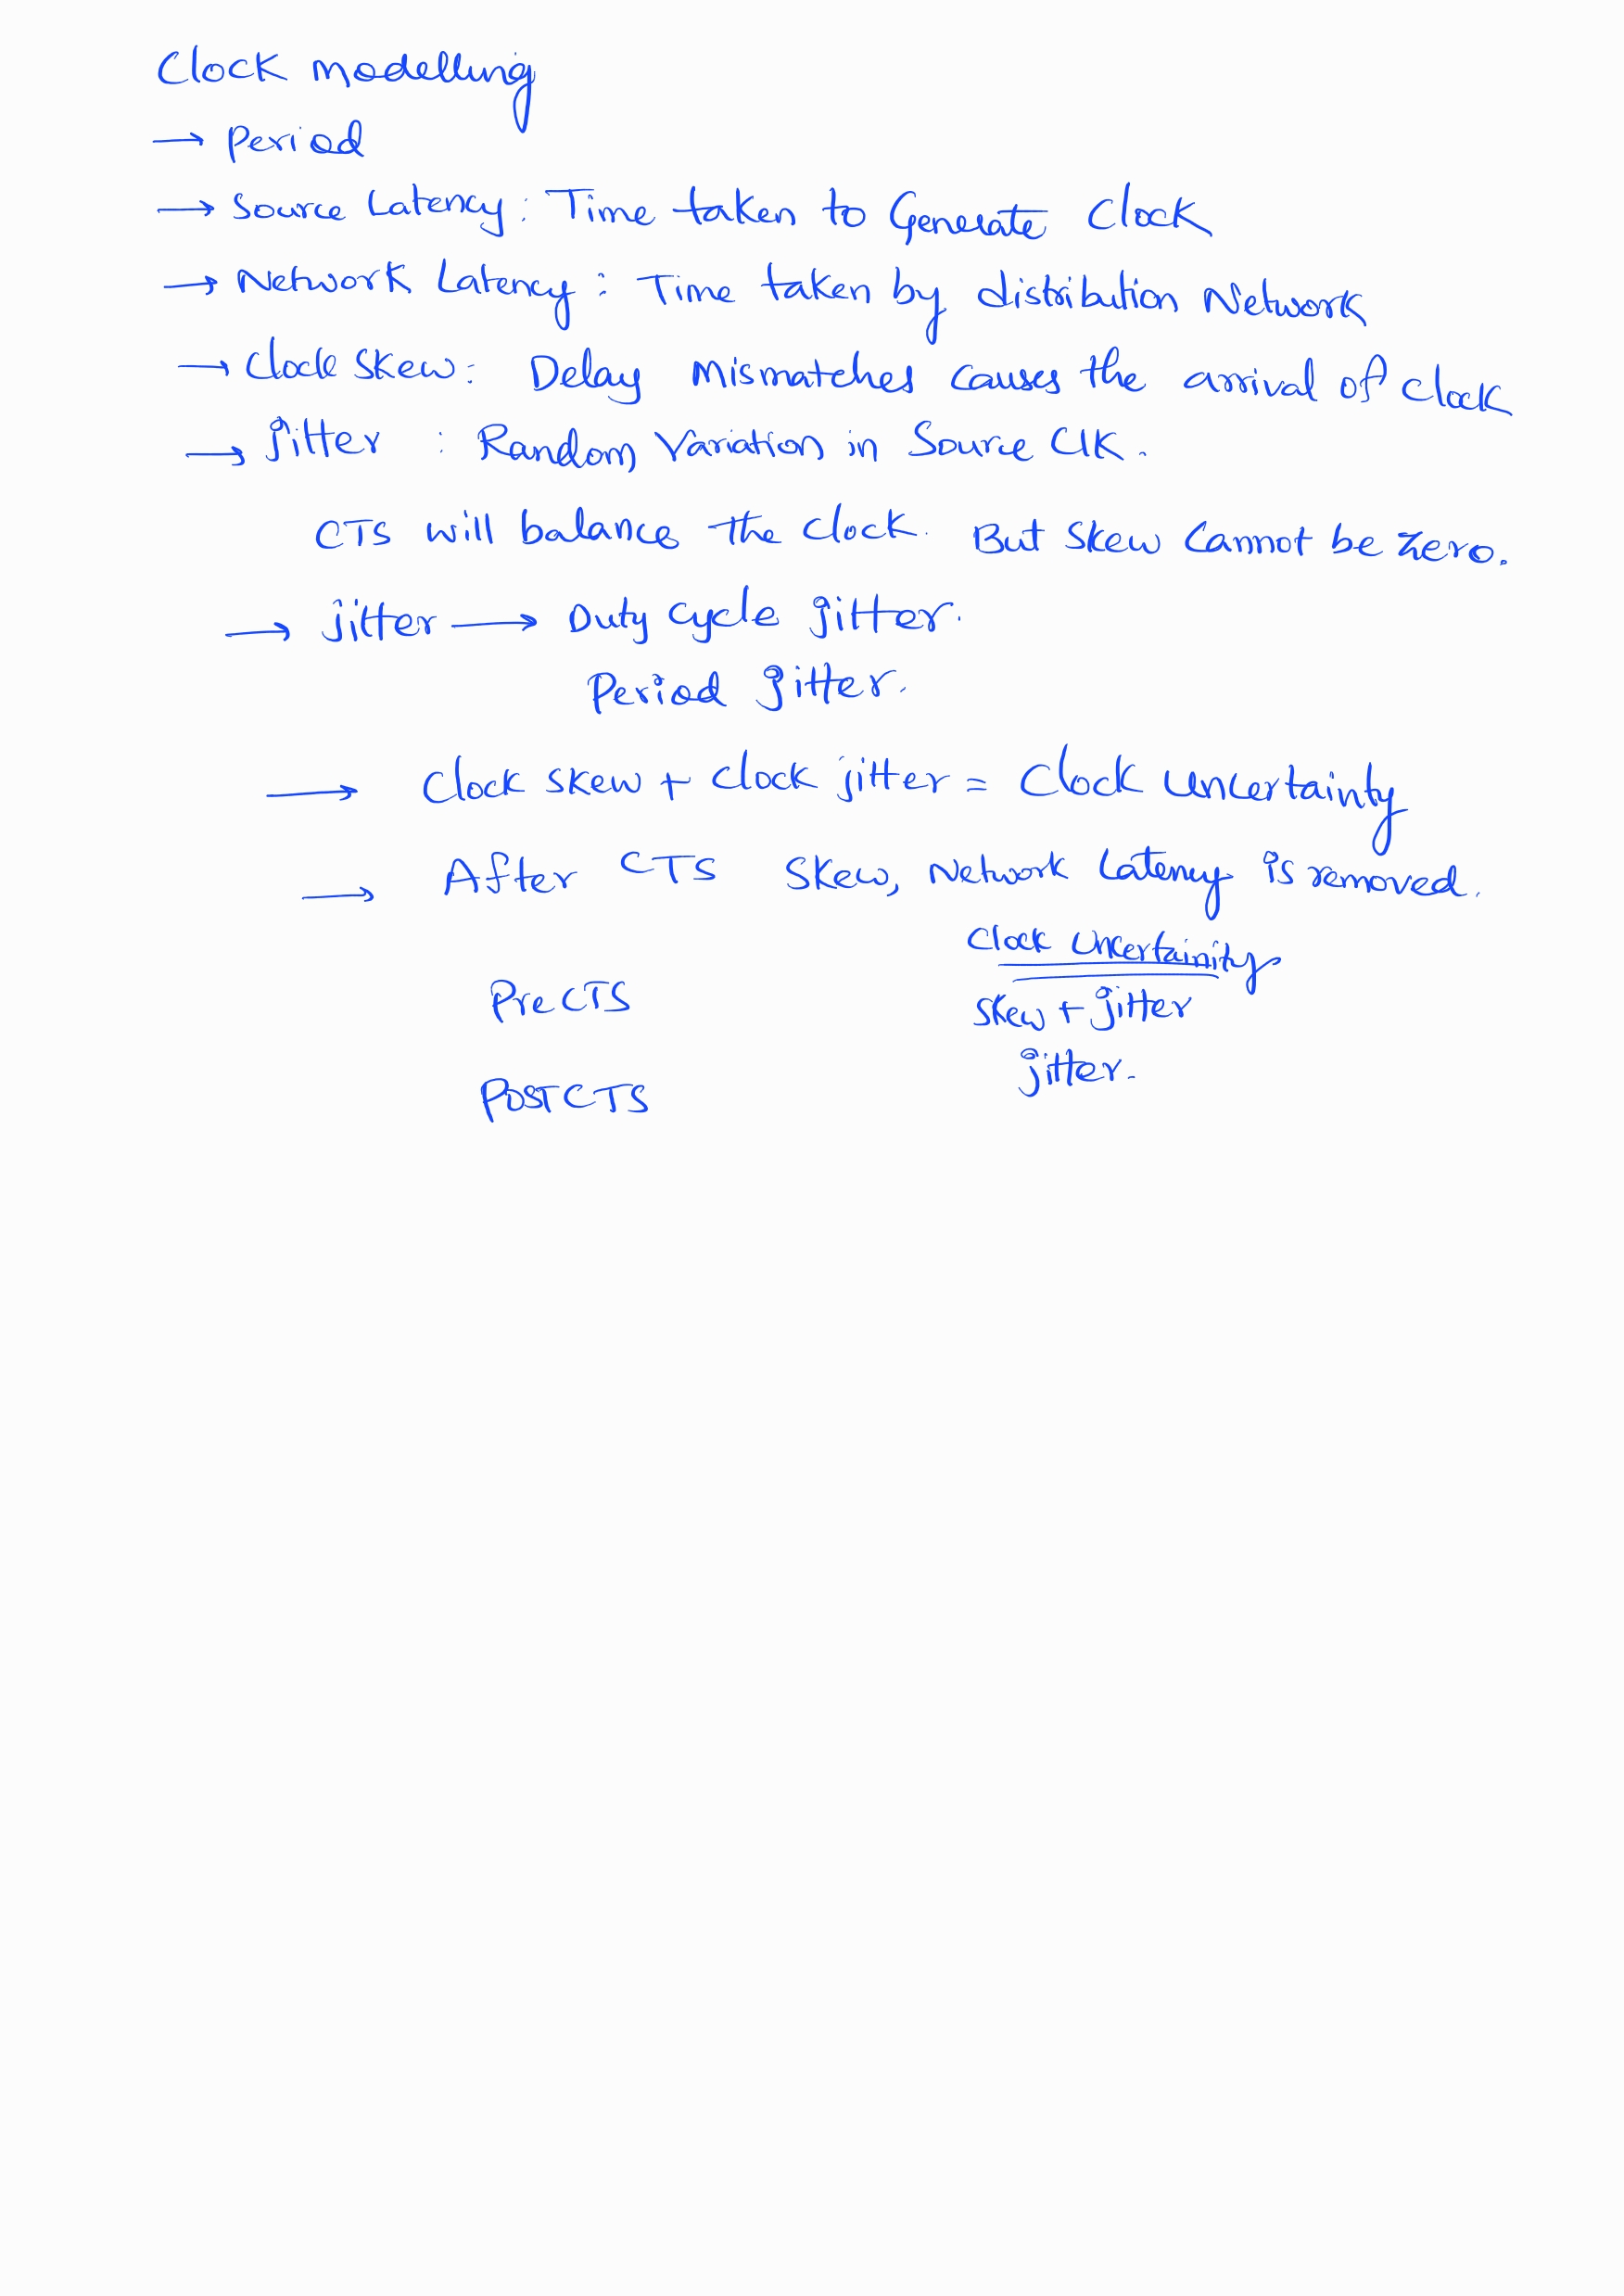 Clock modelling
→ Period
→ Source Latency: Time taken to Generate Clock
→ Network Latency: Time taken by distribution Network
→ Clock Skew: Delay Mismatches causes the arrival of clock
→ jitter : Random Variation in Source Clk.
CTS will balance the clock. But skew cannot be zero.
→ jitter → Duty cycle jitter.
Period jitter.
→ Clock skew + clock jitter = Clock uncertainty
→ After CTS Skew, Network Latency is removed.
Clock Uncertainity
PreCTS skew + jitter
POSTCTS jitter.